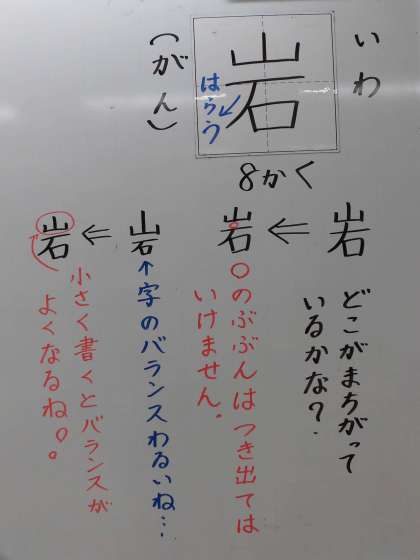 いわ
岩
(がん)
はらう
8かく
岩
←
岩
岩
←
岩
どこがまちがって
いるかな?
○のぶぶんはつき出ては
いけません。
↑字のバランスわるいね…
小さく書くとバランスが
よくなるね。